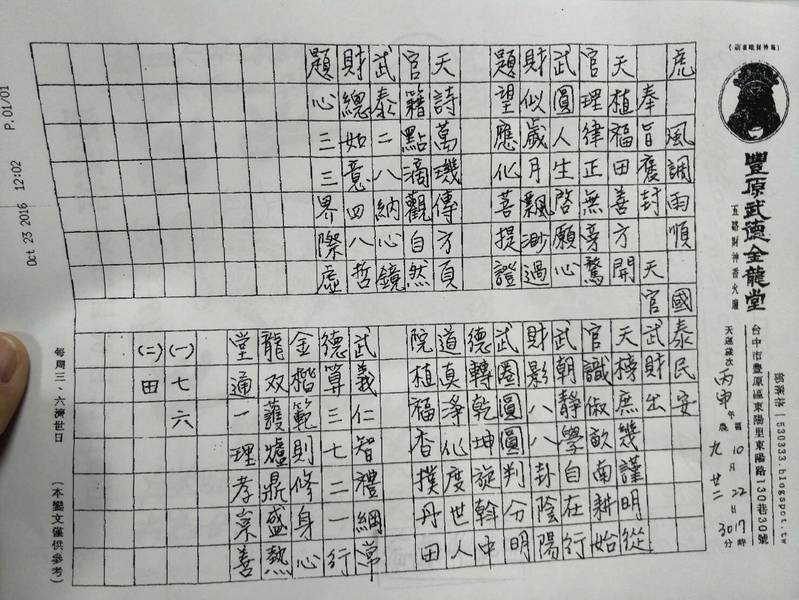 (財神雖福集)
豐原武德金龍堂
五路財神香火廟
台中市豐原區東陽里東陽路130巷30號
部落格|530333.blogspot.tw
天運歲次丙申年國10月22日17時
農九廿二30分
虎 風調雨順 國泰民安
奉旨褒封 天官武財出
天植福田善方開
官理律正無旁騖
武圓人生啓願心
財似歲月飄渺過
題望應化菩提證
天詩萬璣傳方頁
官籍點滴觀自然
武泰二八納心鏡
財總如意四八哲
題心三三界際虛
天榜庶幾謹明從
官識俶畝南耕始
武朝靜學自在行
財影八八卦陰陽
武圈圓圓判分明
德轉乾坤旋斡中
道真淨化度世人
院植福杏撲丹田
武義仁智禮綱常
德算三七二一行
金楷範則修身心
龍双護爐鼎盛熱
堂通一理孝崇善
(一)七六
(二)田
每周三、六濟世日
(本鸞文僅供參考)
Oct 23 2016 12:02 P.01/01